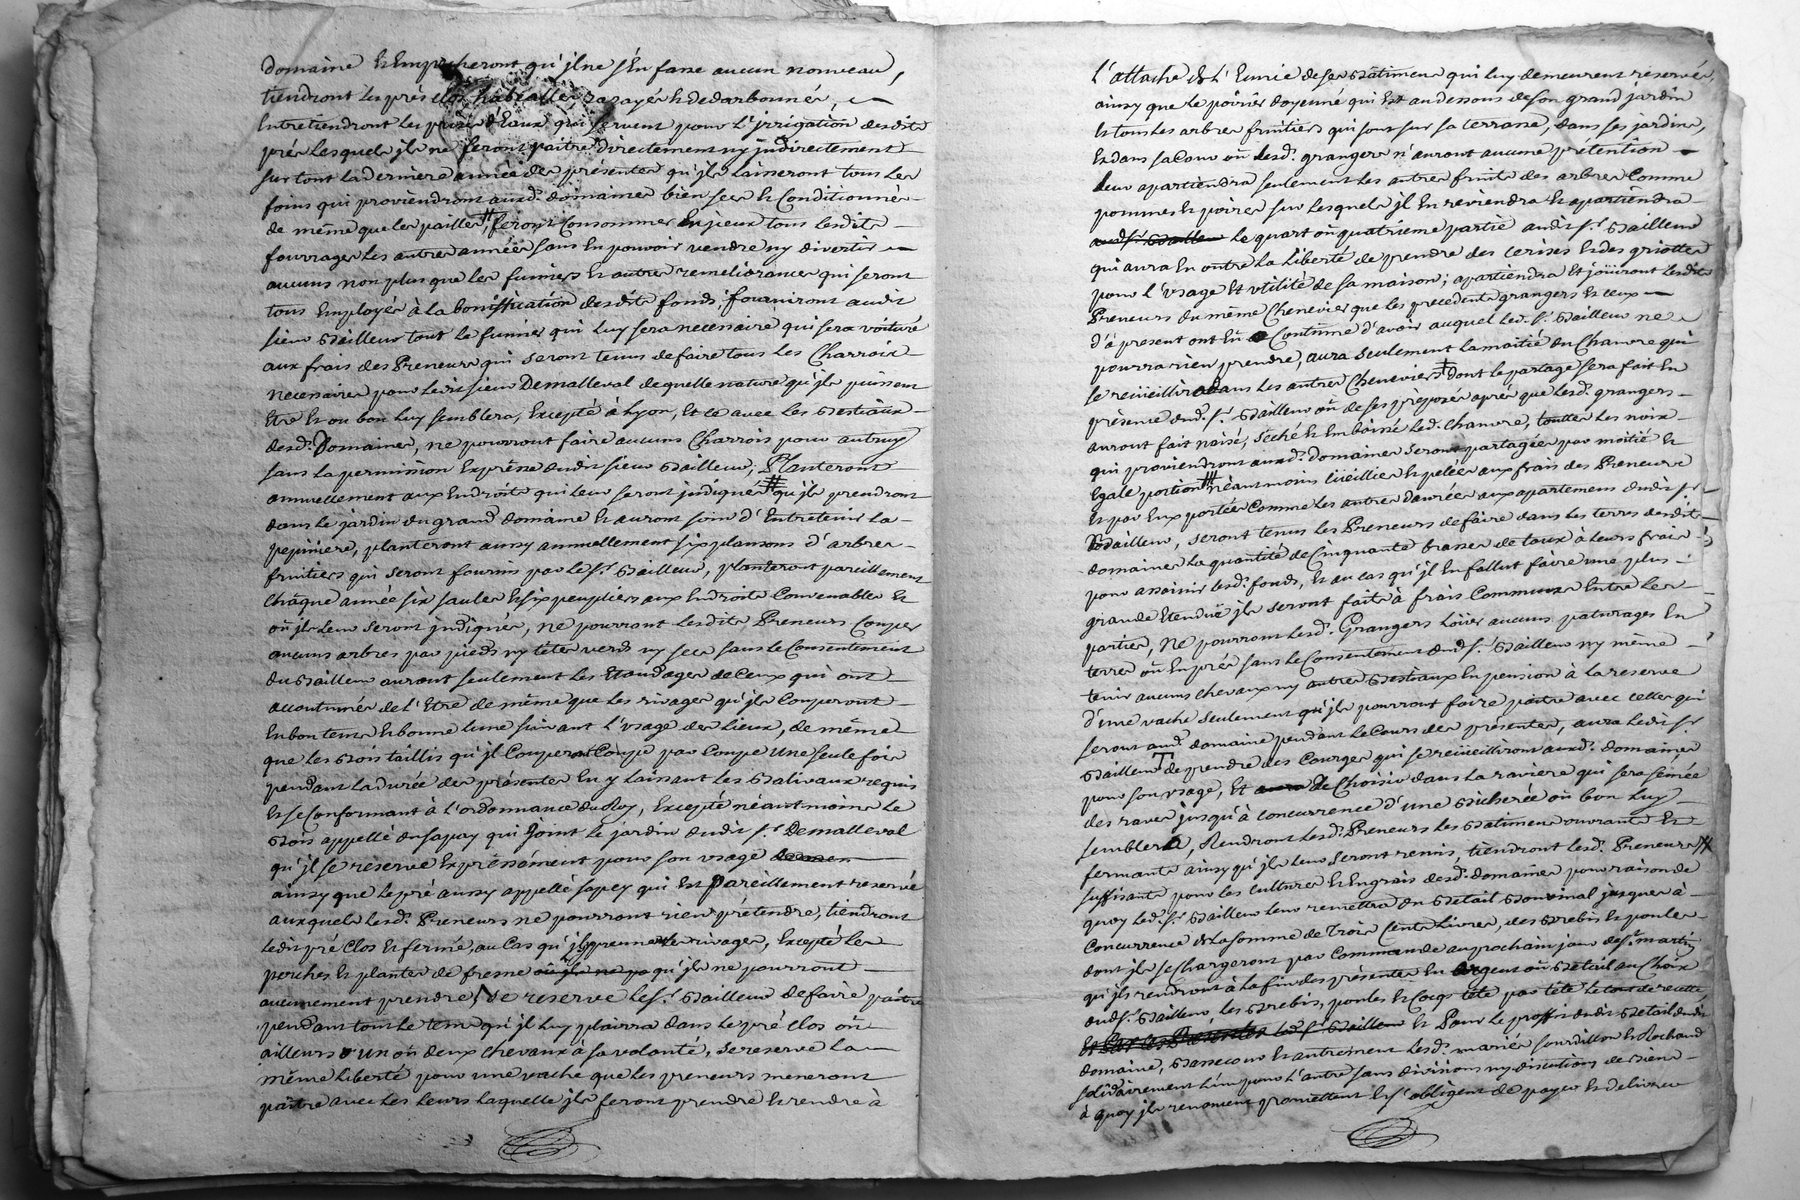 Domaine et Empecheront qu'jl ne s'En fasse aucun nouveau,
tiendront les prés clos rabeallés rapayés et dedarbonnés,
Entretiendront les prises d'Eaux qui servent pour l'jrrigation desdits
prés lesquels jls ne feront paitre directement ny jndirectement
sur tout la derniere année des présentes qu'jls laisseront tous les
foins qui proviendront auxd. domaines bien secs et Conditionnés
de même que les pailles, feront Consommer En jceux tous lesdits
fourrages les autres années sans En pouvoir vendre ny divertir
aucuns non plus que les fumiers et autres remeliorances qui seront
tous Employés à la bonnification desdits fonds, fourniront audit
sieur Bailleur tout le fumier qui luy sera necessaire qui sera voituré
aux frais des Preneurs qui seront tenus de faire tous les Charrois
necessaires pour ledit sieur Demalleval de quelle nature qu'jls puissent
Etre et ou bon luy semblera, Excepté à Lyon, Et ce avec les Bestiaux
desd. Domaines, ne pourront faire aucuns Charrois pour autruy
sans la permission Expresse dudit sieur Bailleur, Planteront
annuellement aux Endroits qui leur seront jndiqués qu'jls prendront
dans le jardin du grand domaine et auront soin d'Entretenir la
pepiniere, planteront aussy annuellement six plansons d'arbres
fruitiers qui seront fournis par le Sr. Bailleur, planteront pareillement
chaque année six saules et six peupliers aux Endroits Convenables et
où jls leur seront jndiqués, ne pourront lesdits Preneurs Couper
aucuns arbres par pieds ny têtes verds ny secs sans le Consentement
du Bailleur auront seulement les Etaudages de Ceux qui ont
accoutumés de l'Etre de même que les rivages qu'jls Couperont
En bon tems et bonne lune suivant l'usage des lieux, de même
que les Bois taillis qu'jls Couperont Coupe par Coupe Une seule fois
pendant la durée des présentes En y laissant les Balivaux requis
Et se Conformant à l'ordonnance du Roy, Excepté néantmoins le
Bois appellé du sapay qui Joint le jardin dudit Sr. Demalleval
qu'jl se réserve Expressément pour son usage
ainsy que le pré aussy appellé sapey qui Est Pareillement reservé
auxquels lesd. Preneurs ne pourront rien prétendre, tiendront
ledit pré Clos et fermé, au Cas qu'jls prennent les rivages, Excepté les
perches et plantes de fresne où jls ne po qu'jls ne pourront
aucunement prendre, Se reserve le Sr. Bailleur de faire paitre
pendant tout le tems qu'jl luy plairra dans le pré Clos où
ailleurs un où deux chevaux à sa volonté, se reserve la
même liberté pour une vache que les preneurs meneront
paitre avec les leurs laquelle jls feront prendre et rendre à
l'attache de l'Ecurie de ses Bâtimens qui luy demeurent reservés,
ainsy que le poirier doyenné qui Est au dessous de son grand jardin
et tous les arbres fruitiers qui sont sur sa terrasse, dans ses jardins,
Et dans sa Cour où lesd. grangers n'auront aucune prétention
leur apartiendra seulement les autres fruits des arbres Comme
pommes et poires sur lesquels jl En reviendra et apartiendra
aud. Sr. Bailleur le quart où quatrieme partie audit Sr. Bailleur
qui aura En outre la Liberté de prendre des Cerises et des griottes
pour l'usage Et utilité de sa maison; apartiendra Et joüiront lesdits
Preneurs du même Chenevier que les precedents grangers et Ceux
d'à present ont Eû Coutume d'avoir auquel led. Sr. Bailleur ne
pourra rien prendre, aura seulement la moitié du Chanvre qui
se reciieillira dans les autres Cheneviers dont le partage sera fait En
présence dud. Sr. Bailleur où de ses preposés après que lesd. grangers
auront fait naisé, séché et Emboissé led. Chanvre, touttes les noix
qui proviendront auxd. domaines seront partagées par moitié et
Egale portion néantmoins cüeillies et pelées aux frais des Preneurs
et par Eux portées Comme les autres danrées aux apartemens dudit Sr.
Bailleur, seront tenus les Preneurs de faire dans les terres desdits
domaines la quantité de Cinquante brasses de taux à leurs frais
pour assainir lesd. fonds, et au cas qu'jl En fallut faire une plus
grande Etendüe jls seront faits à frais Communs Entre les
parties, Ne pourront lesd. Grangers Loüer aucuns paturages En
terres où En prés sans le Consentement dud. Sr. Bailleur ny même
tenir aucuns chevaux ny autres Bestiaux En pension à la reserve
d'une vache seulement qu'jls pourront faire paitre avec Celles qui
seront aud. domaine pendant le Cours des présentes, aura ledit Sr.
Bailleur de prendre des Courges qui se reciieilliront auxd. domaines
pour son usage, Et de Choisir dans la raviere qui sera semée
des raves jusqu'à Concurrence d'une Bicherée où bon luy
semblera, Rendront lesd. Preneurs les Batimens ouvrants Et
fermants ainsy qu'jls leur seront remis, tiendront lesd. Preneurs
suffisants pour les Cultures et Engrais desd. domaines pour raison de
quoy led. Sr. Bailleur leur remettra du Betail Bouvinal jusques à
Concurrence de la somme de Trois Cents Livres, des Brebis et poules
dont jls se Chargeront par Commande au prochain jour de St. Martin
qu'jls rendront à la fin des présentes En Argent où Betail au Choix
dud. Sr. Bailleur, les Brebis, poules et Coqs tête par tête
Et Par Ces Presentes led. Sr. Bailleur Et Pour le proffit dudit Betail dudit
domaine, Bassecour et autrement lesd. mariés sourdillon et Rochand
solidairement l'un pour l'autre sans divisions ny discutions de Biens
à quoy jls renoncent promettent et s'obligent de payer et delivrer